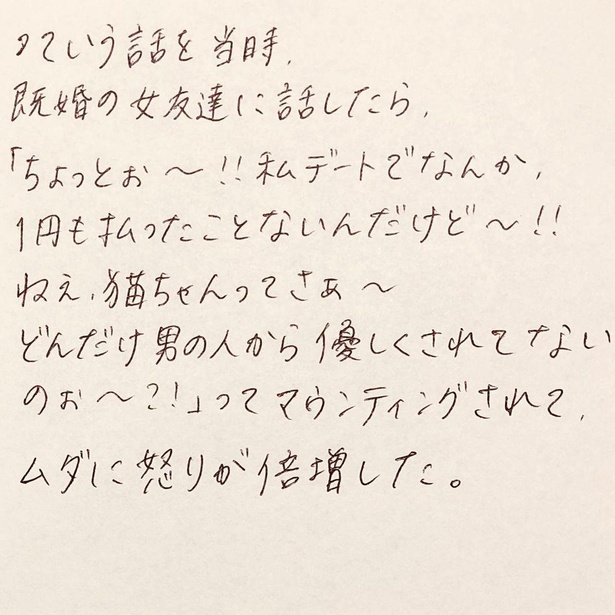 っていう話を当時、
既婚の女友達に話したら、
「ちょっとぉ〜!!私デートでなんか、
1円も払ったことないんだけど〜!!
ねえ、猫ちゃんってさぁ〜
どんだけ男の人から優しくされてない
のぉ〜?!」ってマウンティングされて、
ムダに怒りが倍増した。